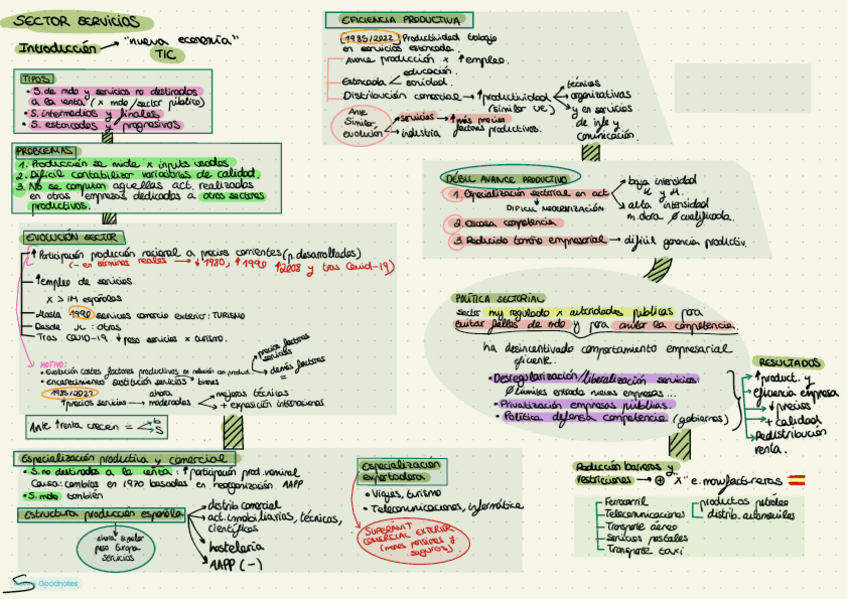 SECTOR SERVICIOS
Introducción → "nueva economía"
TIC
TIPOS
• S. de mdo y servicios no destinados
a la venta (x mdo/sector público)
• S. intermedios y finales
• S. estancados y progresivos
PROBLEMAS
1. Producción se mide x inputs usados
2. Difícil contabilizar variaciones de calidad.
3. No se computan aquellas act. realizadas
en otras empresas dedicadas a otros sectores
productivos.
EVOLUCIÓN SECTOR
↑ Participación producción nacional a precios corrientes (p. desarrollados)
(- en términos reales → ↓ 1980, ↑ 1990 ↑ 2008 y tras Covid-19)
↑ empleo de servicios
x > IM españolas
Hasta 1990 servicios comercio exterior: TURISMO
Desde : otras
Tras COVID-19 ↓ peso servicios x turismo.
MOTIVO:
• Evolución costes factores productivos en relación con product.
precios factores
servicios
demás factores
=
• encarecimiento sustitución servicios bienes
1985/2022 ahora
↑ precios servicios → moderados
mejoras técnicas
+ exposición internacional
Ante ↑ renta crecen =
b
S
Especialización productiva y comercial
• S. no destinados a la venta: ↑ participación prod. nominal
Causa: cambios en 1970 basados en reorganización AAPP
• S. mdo también
Estructura producción española
distrib comercial
act. inmobiliarias, técnicas,
científicas
hostelería
AAPP (-)
ahora similar
peso Europa
servicios
Especialización
exportadora
• Viajes, turismo
• Telecomunicaciones, informática
SUPERÁVIT
COMERCIAL EXTERIOR
(menos pensiones y
seguros)
EFICIENCIA PRODUCTIVA
1985/2022 Productividad trabajo
en servicios estancada.
Avance producción x ↑ empleo.
Estancada
educación.
sanidad.
Distribución comercial → ↑ productividad
(similar UE)
técnicas
organizativas
y en servicios
de info y
comunicación.
Ante
similar
evolución
servicios → ↑ más precios
industria factores productivos.
DÉBIL AVANCE PRODUCTIVO
1. Especialización sectorial en act
baja intensidad
K y H.
DIFICIL MODERNIZACIÓN
alta intensidad
m. obra Ø cualificada.
2. Escasa competencia
3. Reducido tamaño empresarial → difícil gerencia productiv.
POLÍTICA SECTORIAL
sector my regulado x autoridades públicas para
evitar fallos de mdo y para anular la competencia.
ha desincentivado comportamiento empresarial
eficiente.
• Desregularización/liberalización servicios:
Ø límites entrada nuevas empresas ...
• Privatización empresas públicas.
• Política defensa competencia (gobiernos)
RESULTADOS
↑ product. y
eficiencia empresa
↓ precios
+ calidad
Redistribución
renta.
Reducción barreras y
restricciones → ⊕ "x" e. manufactureras
Ferrocarril
Telecomunicaciones
Transporte aéreo
servicios postales
Transporte taxi
productos petróleo
distrib. automóviles
Goodnotes